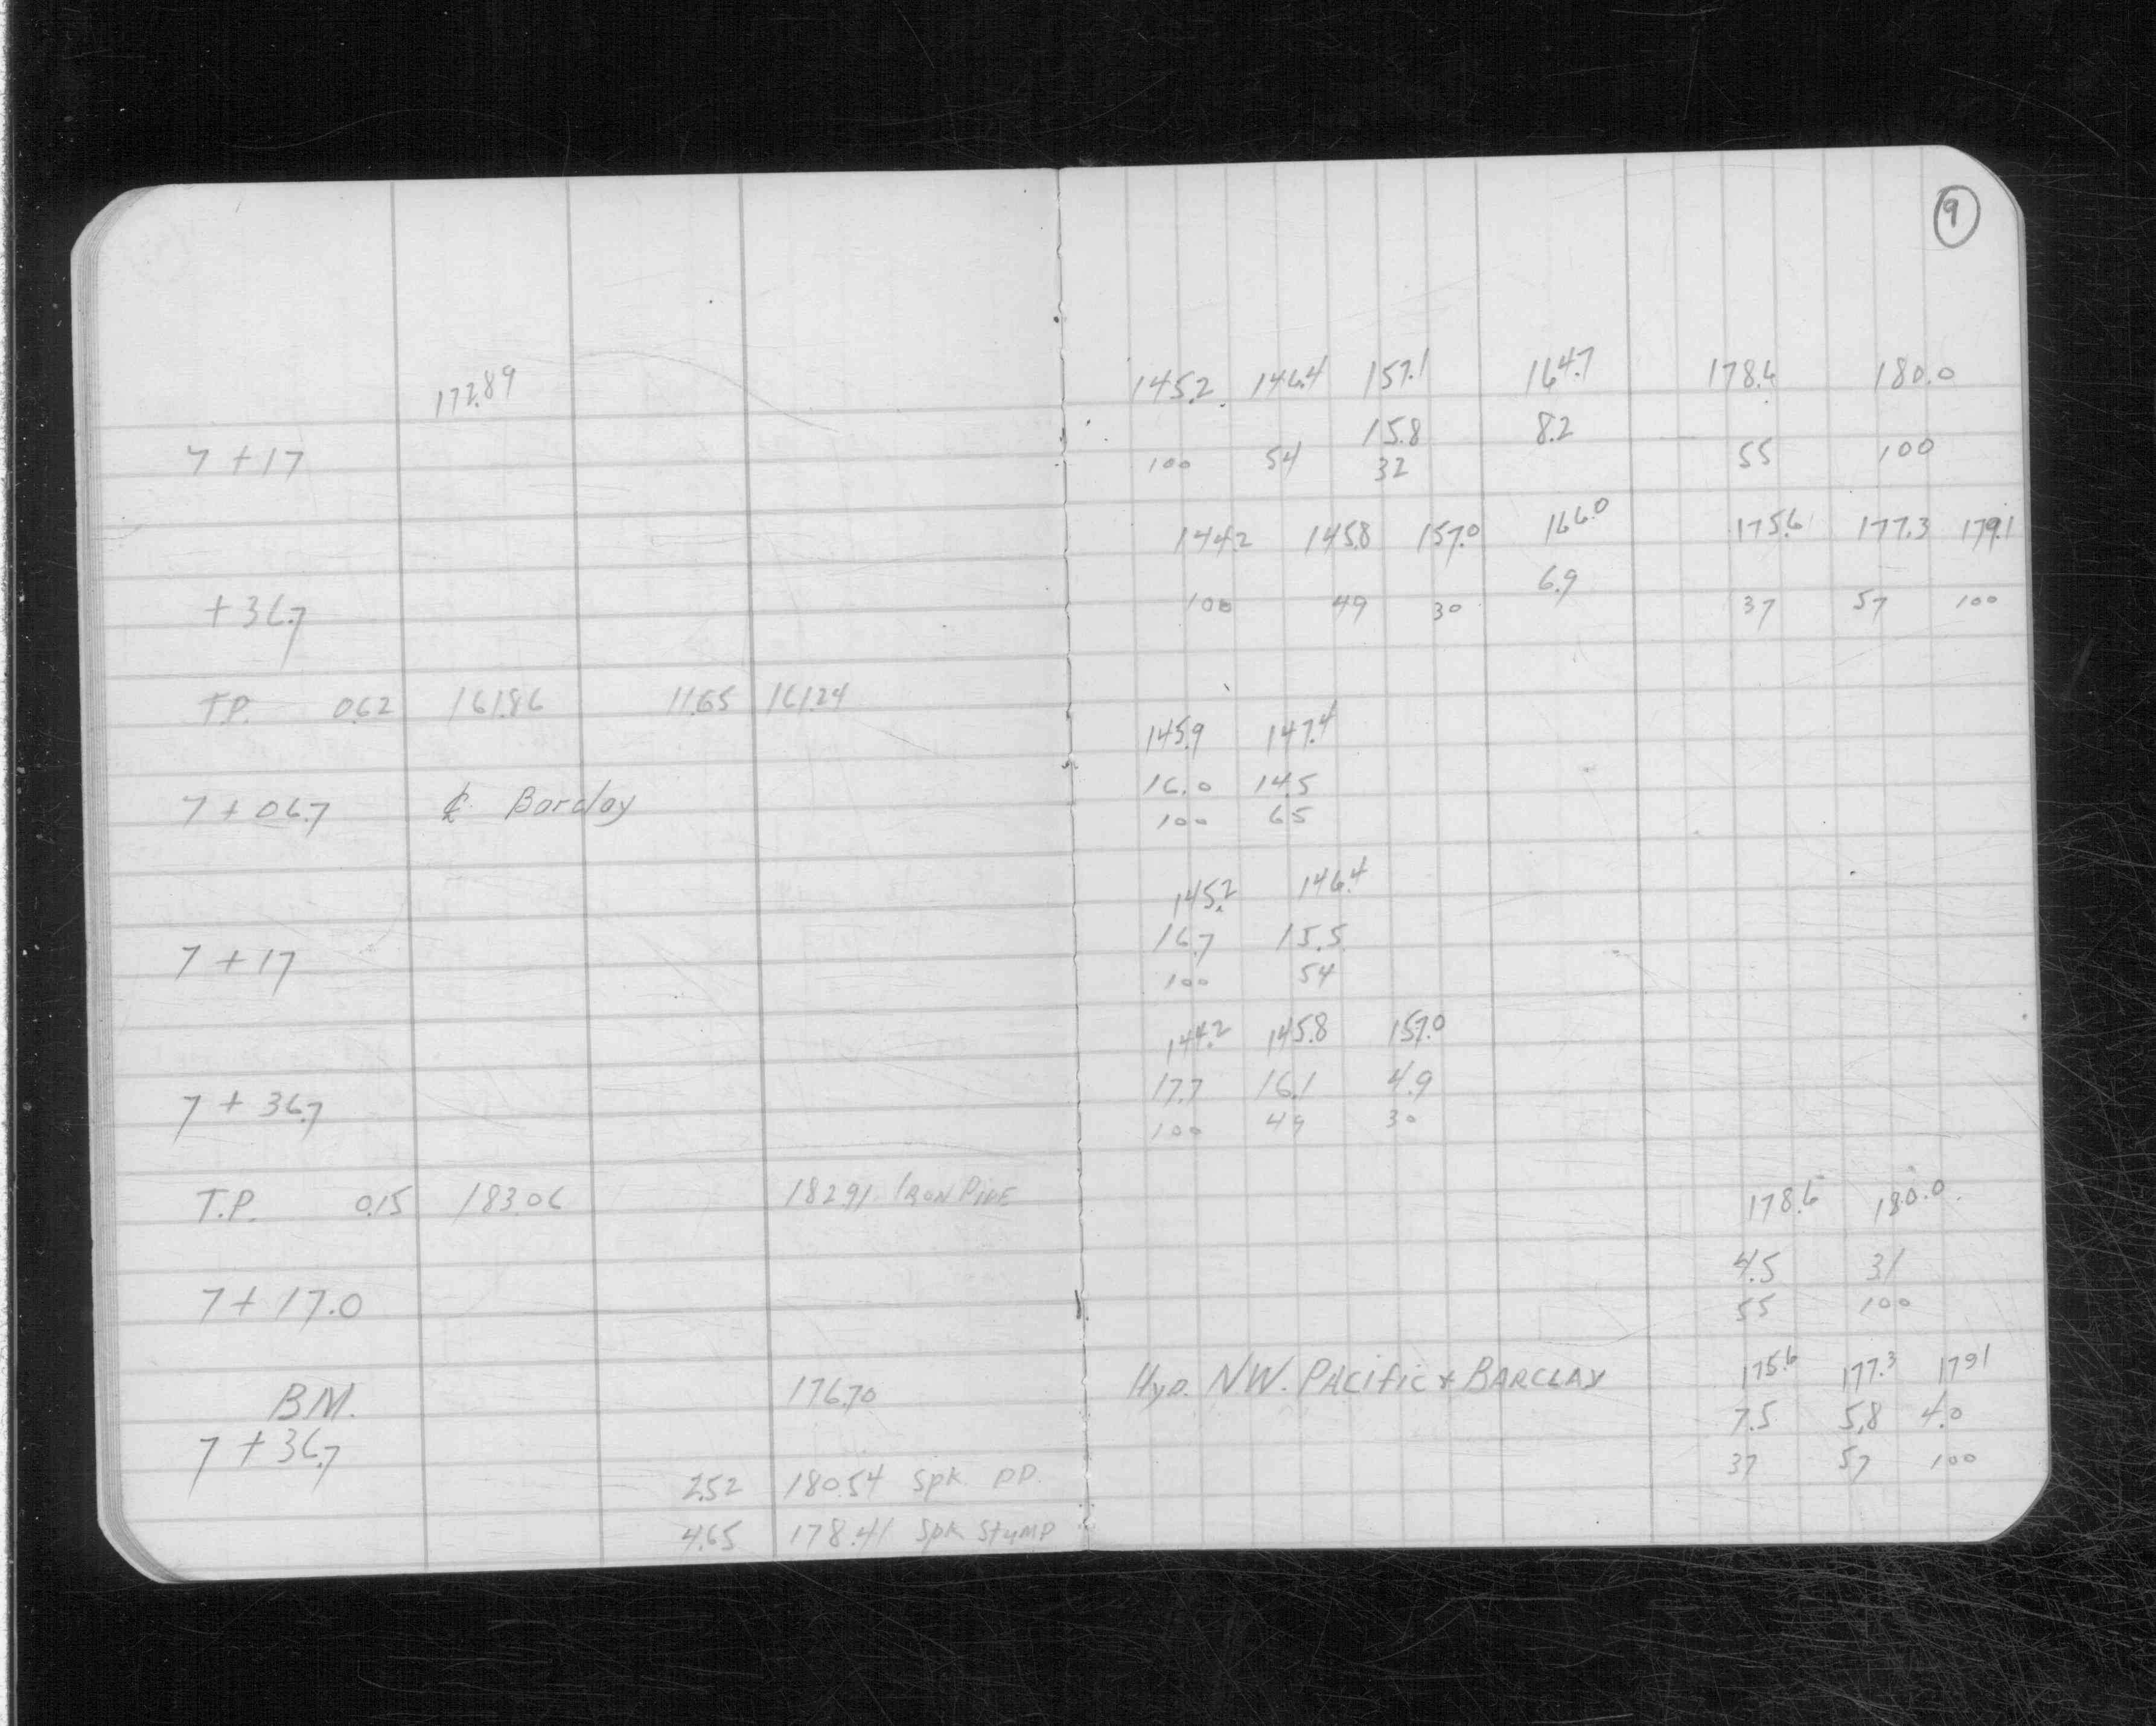 9
172.89 145.2 146.4 157.1 164.7 178.6 180.0
15.8 8.2
7 + 17 100 54 32 55 100
144.2 145.8 157.0 166.0 175.6 177.3 179.1
6.9
+ 36.7 100 49 30 37 57 100
T.P. 0.62 161.86 11.65 161.24
145.9 147.4
16.0 14.5
7 + 06.7 ℄ Barclay 100 65
145.2 146.4
16.7 15.5
7 + 17 100 54
144.2 145.8 157.0
17.7 16.1 4.9
7 + 36.7 100 49 30
T.P. 0.15 183.06 182.91 IRON PIPE 178.6 180.0
4.5 31
7 + 17.0 55 100
B.M. 176.70 HYD. NW. PACIFIC & BARCLAY 175.6 177.3 179.1
7.5 5.8 4.0
7 + 36.7 37 57 100
2.52 180.54 Spk PP.
4.65 178.41 Spk Stump